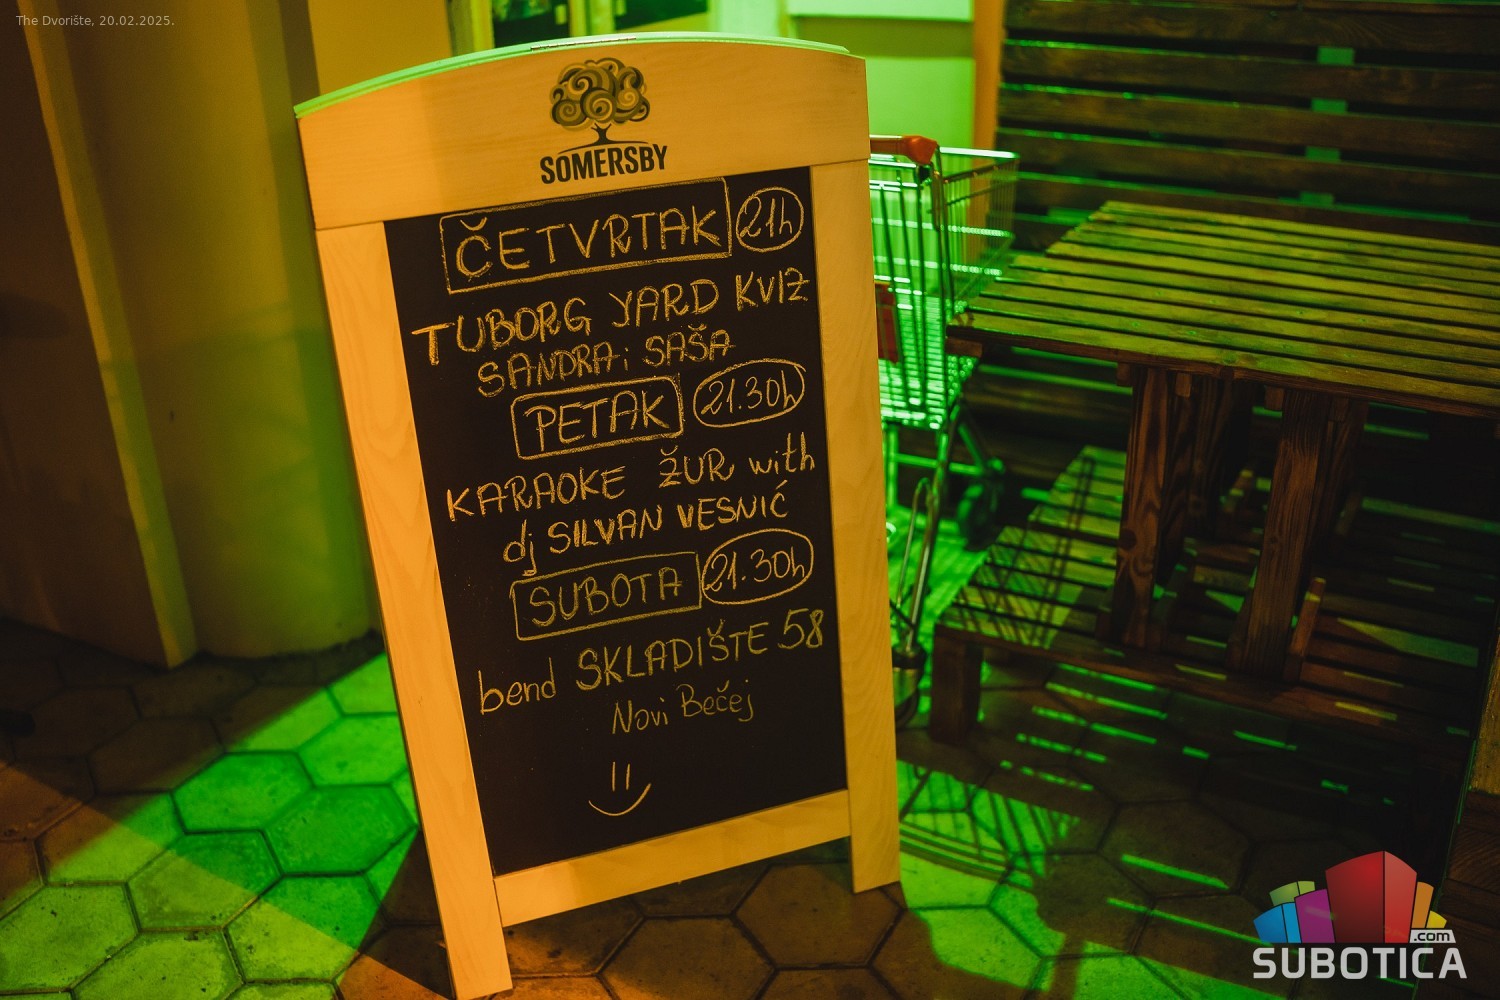 The Dvorište, 20.02.2025.
SOMERSBY
ČETVRTAK 21h
TUBORG YARD KVIZ
SANDRA i SAŠA
PETAK 21.30h
KARAOKE ŽUR with
dj SILVAN VESNIĆ
SUBOTA 21.30h
bend SKLADIŠTE 58
Novi Bečej
.com
SUBOTICA